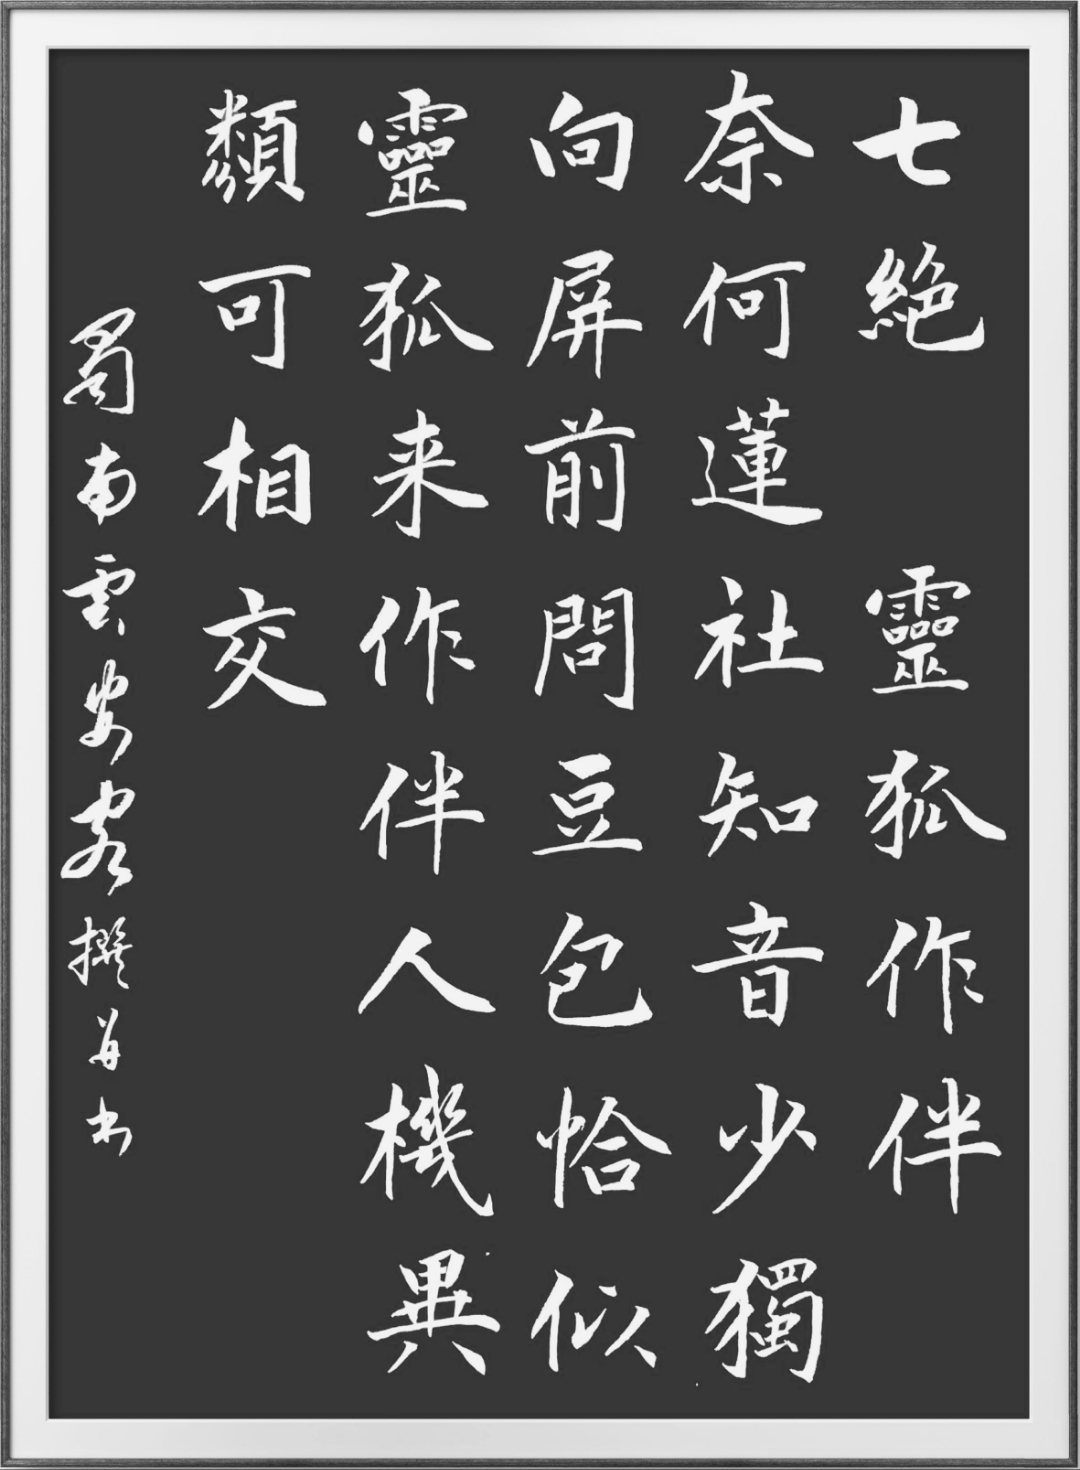 七絶 靈狐作伴
奈何蓮社知音少獨
向屏前問豆包恰似
靈狐来作伴人機異
類可相交
蜀南雲安客撰并书